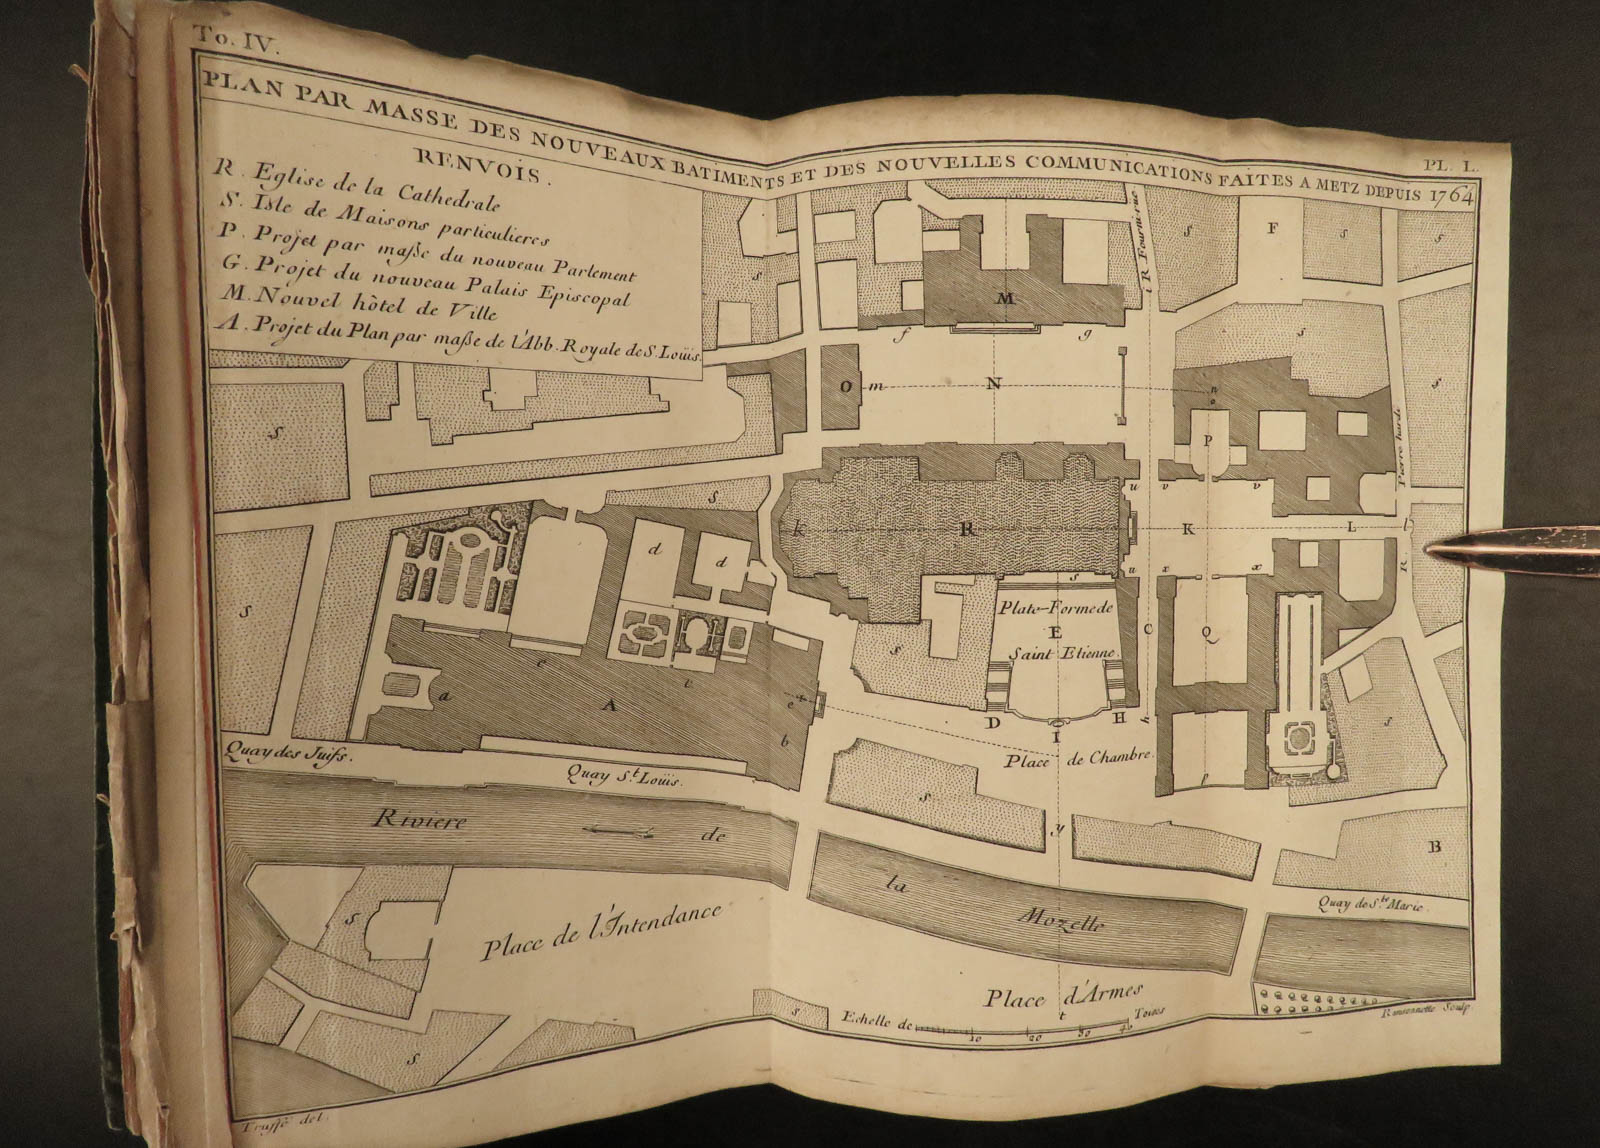 To. IV.
PL. L.
PLAN PAR MASSE DES NOUVEAUX BATIMENTS ET DES NOUVELLES COMMUNICATIONS FAITES A METZ DEPUIS 1764
RENVOIS.
R. Eglise de la Cathedrale
S. Isle de Maisons particulieres
P. Projet par maſse du nouveau Parlement
G. Projet du nouveau Palais Episcopal
M. Nouvel hôtel de Ville
A. Projet du Plan par maſse de l'Abb. Royale de S. Loüis.
R Fournirue
S
F
S
S
S
M
f
g
S
S
O
m
N
n
o
S
P
R. Pierre harde
S
u
v
v
k
R
K
L
l
d
d
S
u
x
x
s
Plate-Forme de
E
Saint Etienne
C
Q
S
S
c
a
A
i
e
b
D
H
h
I
Place de Chambre
S
l
Quay des Juifs.
Quay St. Loüis.
S
y
B
Riviere de la Mozelle
Quay de Ste. Marie.
S
Place de l'Intendance
Place d'Armes
t
S
S
Echelle de 10 20 30 40 Toises
Truffé del.
Ransonnette Sculp.